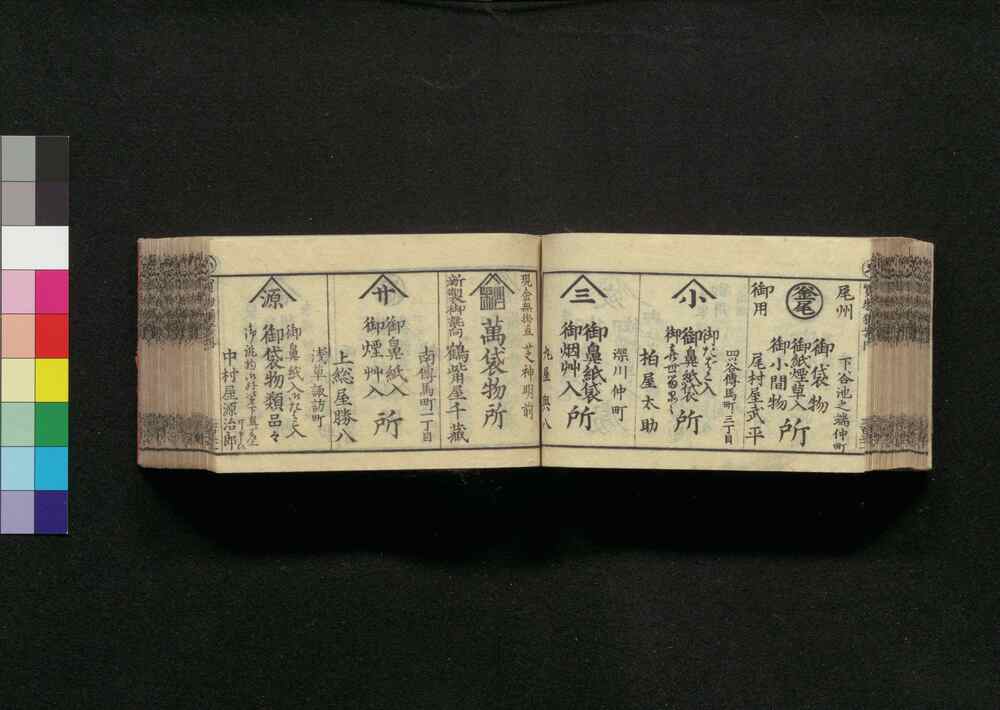 尾州
御用
釜尾
下谷池之端仲町
御袋物
御紙煙草入
御小間物
所
尾村屋武平
小
四谷傳馬町二丁目
御たばこ入
御鼻紙袋
所
柏屋太助
三
深川仲町
御鼻紙袋
御烟艸入
所
丸屋與八
現金無掛直
芝神明前
萬袋物所
新製御薬
鶴觜屋千蔵
廿
南傳馬町二丁目
御鼻紙入
御煙艸入
所
上総屋勝八
源
浅草諏訪町
御鼻紙入
御たばこ入
御袋物類品々
中村屋源治郎